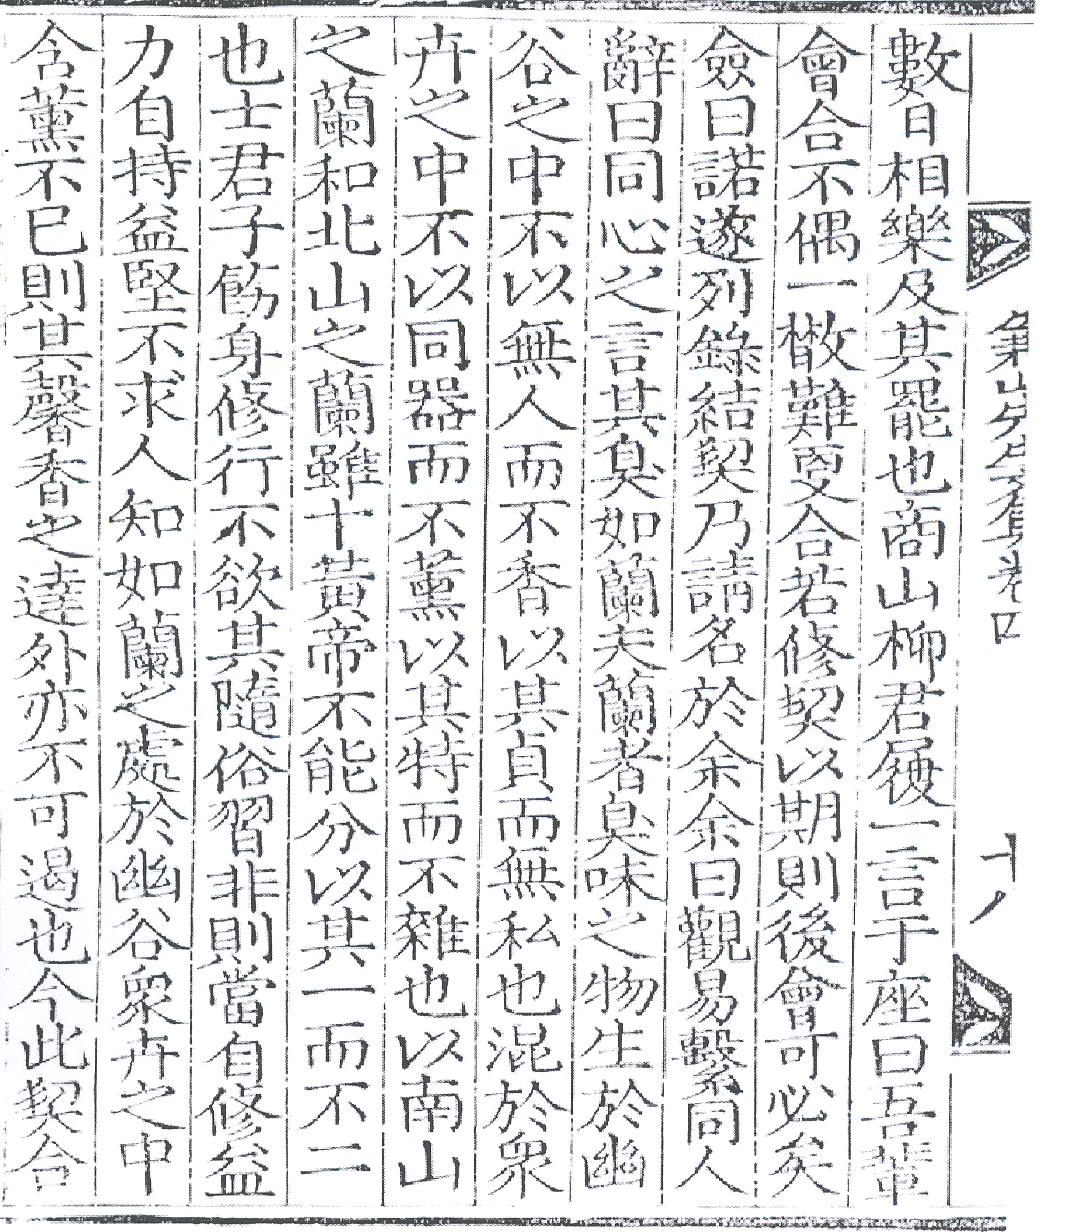 數日相樂及其罷也商山柳君屐一言于座曰吾輩
會合不偶一散難更合若修契以期則後會可必矣
僉曰諾遂列錄結契乃請名於余余曰觀易繫同人
辭曰同心之言其臭如蘭夫蘭者臭味之物生於幽
谷之中不以無人而不香以其貞而無私也混於衆
卉之中不以同器而不薰以其特而不雜也以南山
之蘭和北山之蘭雖十黃帝不能分以其一而不二
也士君子飭身修行不欲其隨俗習非則當自修益
力自持益堅不求人知如蘭之處於幽谷衆卉之中
含薰不已則其馨香之達外亦不可遏也今此契合